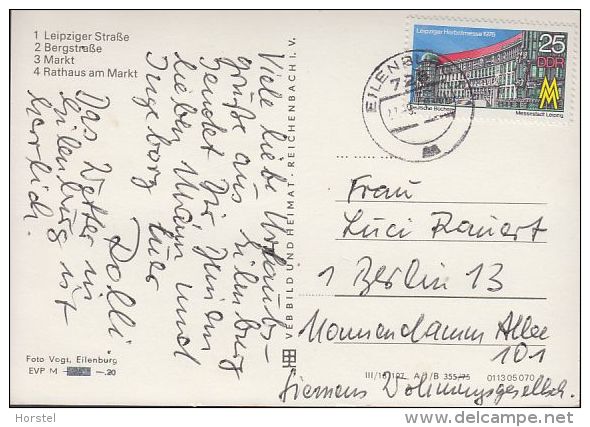 1 Leipziger Straße
2 Bergstraße
3 Markt
4 Rathaus am Markt
Viele liebe Urlaubs-
grüße aus Eilenburg
sendet Dir Deinem
lieben Mann und
Ingeborg Eure
Dolli
Das Wetter in
Eilenburg ist
herrlich.
Foto Vogt, Eilenburg
EVP M -.20
VEB BILD UND HEIMAT · REICHENBACH I. V.
EILENBURG
728
Leipziger Herbstmesse 1975
25
DDR
MM
Deutsche Bücherei
Messestadt Leipzig
Frau
Luci Rauert
1 Berlin 13
Nonnendamm Allee
101
Siemens Wohnungsgesellsch.
III/18/197 A/1/B 355/75 01 13 05 070
Horstel
www.delcampe.net